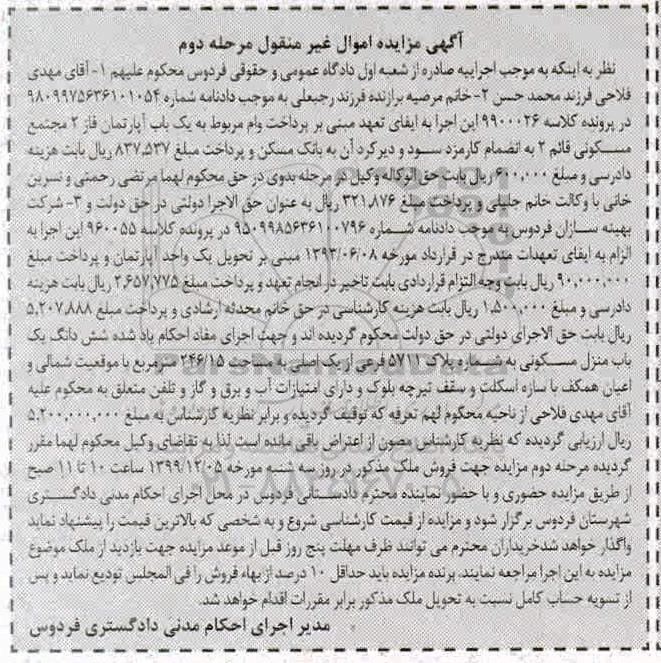 آگهی مزایده اموال غیر منقول مرحله دوم
نظر به اینکه به موجب اجراییه صادره از شعبه اول دادگاه عمومی و حقوقی فردوس محکوم علیهم ۱- آقای مهدی
فلاحی فرزند محمد حسن ۲- خانم مرضیه برازنده فرزند رجبعلی به موجب دادنامه شماره ۹۸۰۹۹۷۵۶۳۶۱۰۱۰۵۴
در پرونده کلاسه ۹۹۰۰۰۲۶ این اجرا به ایفای تعهد مبنی بر پرداخت وام مربوط به یک باب آپارتمان فاز ۲ مجتمع
مسکونی قائم ۲ به انضمام کارمزد سود و دیرکرد آن به بانک مسکن و پرداخت مبلغ ۸۳۷,۵۳۷ ریال بابت هزینه
دادرسی و مبلغ ۶۰۰,۰۰۰ ریال بابت حق الوکاله وکیل در مرحله بدوی در حق محکوم لهما مرتضی رحمتی و نسرین
خانی با وکالت خانم جلیلی و پرداخت مبلغ ۳۲۱,۸۷۶ ریال به عنوان حق الاجرا دولتی در حق دولت و ۳- شرکت
بهینه سازان فردوس به موجب دادنامه شماره ۹۵۰۹۹۸۵۶۳۶۱۰۰۷۹۶ در پرونده کلاسه ۹۶۰۰۵۵ این اجرا به
الزام به ایفای تعهدات مندرج در قرارداد مورخه ۱۳۹۳/۰۶/۰۸ مبنی بر تحویل یک واحد آپارتمان و پرداخت مبلغ
۹۰,۰۰۰,۰۰۰ ریال بابت وجه التزام قراردادی بابت تاخیر در انجام تعهد و پرداخت مبلغ ۲,۶۵۷,۷۷۵ ریال بابت هزینه
دادرسی و مبلغ ۱,۵۰۰,۰۰۰ ریال بابت هزینه کارشناسی در حق خانم محدثه ارشادی و پرداخت مبلغ ۵,۲۰۷,۸۸۸
ریال بابت حق الاجرای دولتی در حق دولت محکوم گردیده اند و جهت اجرای مفاد احکام یاد شده شش دانگ یک
باب منزل مسکونی به شماره پلاک ۵۷۱۱ فرعی از یک اصلی به مساحت ۲۴۶/۱۵ مترمربع با موقعیت شمالی و
اعیان همکف با سازه اسکلت و سقف تیرچه بلوک و دارای امتیازات آب و برق و گاز و تلفن متعلق به محکوم علیه
آقای مهدی فلاحی از ناحیه محکوم لهم تعرفه که توقیف گردیده و برابر نظریه کارشناس به مبلغ ۵,۲۰۰,۰۰۰,۰۰۰
ریال ارزیابی گردیده که نظریه کارشناس مصون از اعتراض باقی مانده است لذا به تقاضای وکیل محکوم لهما مقرر
گردیده مرحله دوم مزایده جهت فروش ملک مذکور در روز سه شنبه مورخه ۱۳۹۹/۱۲/۰۵ ساعت ۱۰ تا ۱۱ صبح
از طریق مزایده حضوری و با حضور نماینده محترم دادستانی فردوس در محل اجرای احکام مدنی دادگستری
شهرستان فردوس برگزار شود و مزایده از قیمت کارشناسی شروع و به شخصی که بالاترین قیمت را پیشنهاد نماید
واگذار خواهد شد خریداران محترم می توانند ظرف مهلت پنج روز قبل از موعد مزایده جهت بازدید از ملک موضوع
مزایده به این اجرا مراجعه نمایند. برنده مزایده باید حداقل ۱۰ درصد از بهاء فروش را فی المجلس تودیع نماید و پس
از تسویه حساب کامل نسبت به تحویل ملک مذکور برابر مقررات اقدام خواهد شد.
مدیر اجرای احکام مدنی دادگستری فردوس